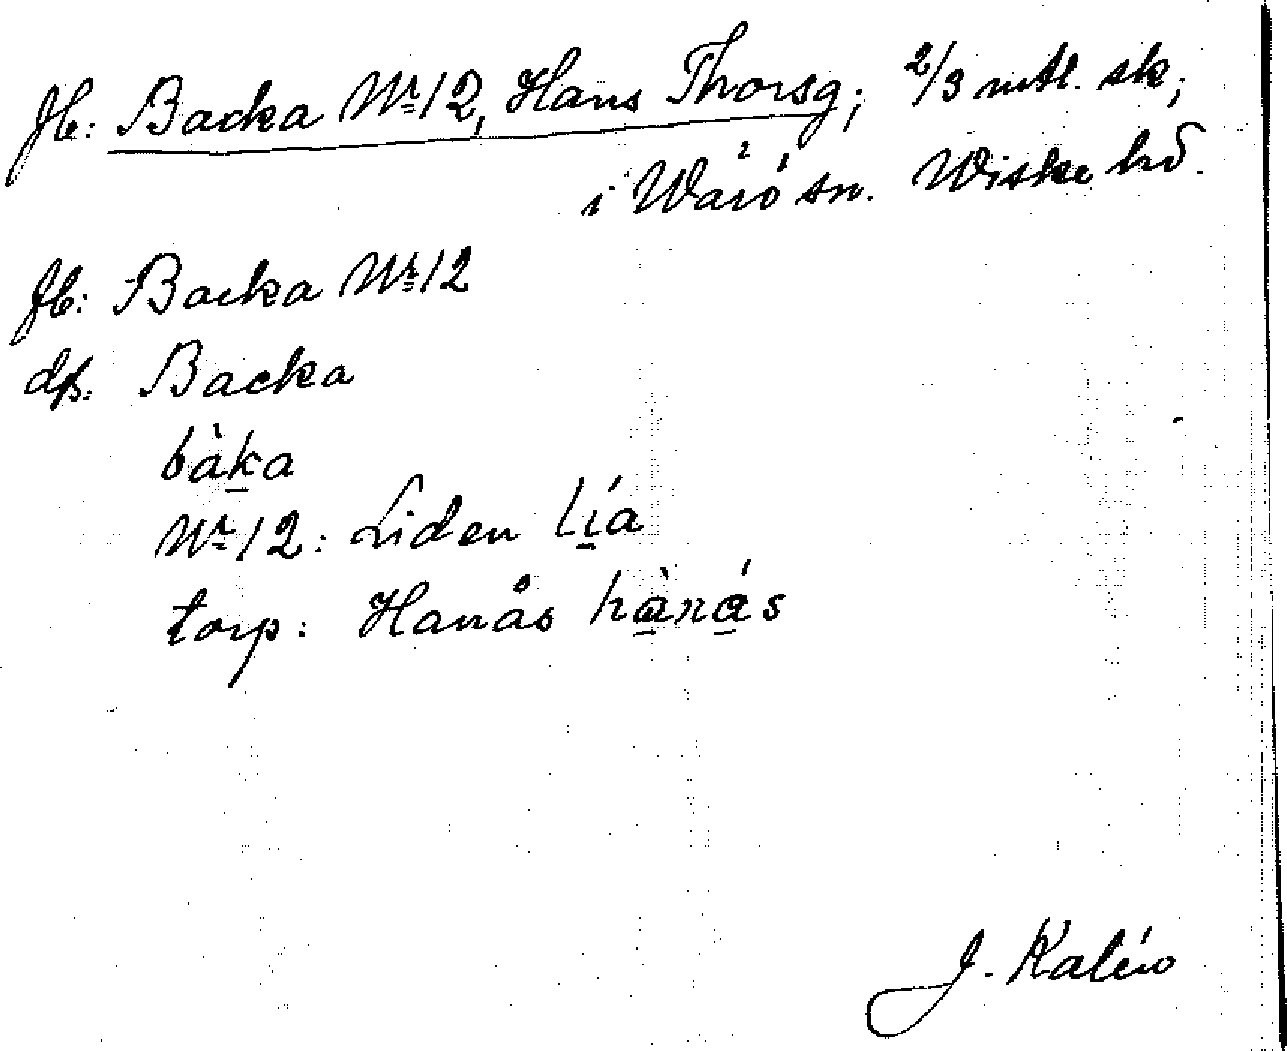 Jb: Backa Nr 12, Hans Thorsg; 2/3 mtl. sk;
i Wärö sn. Wiske hd.
Jb: Backa Nr 12
ds. Backa
bàka
Nr 12: Liden lía
torp: Hanås hànás
J. Kalén